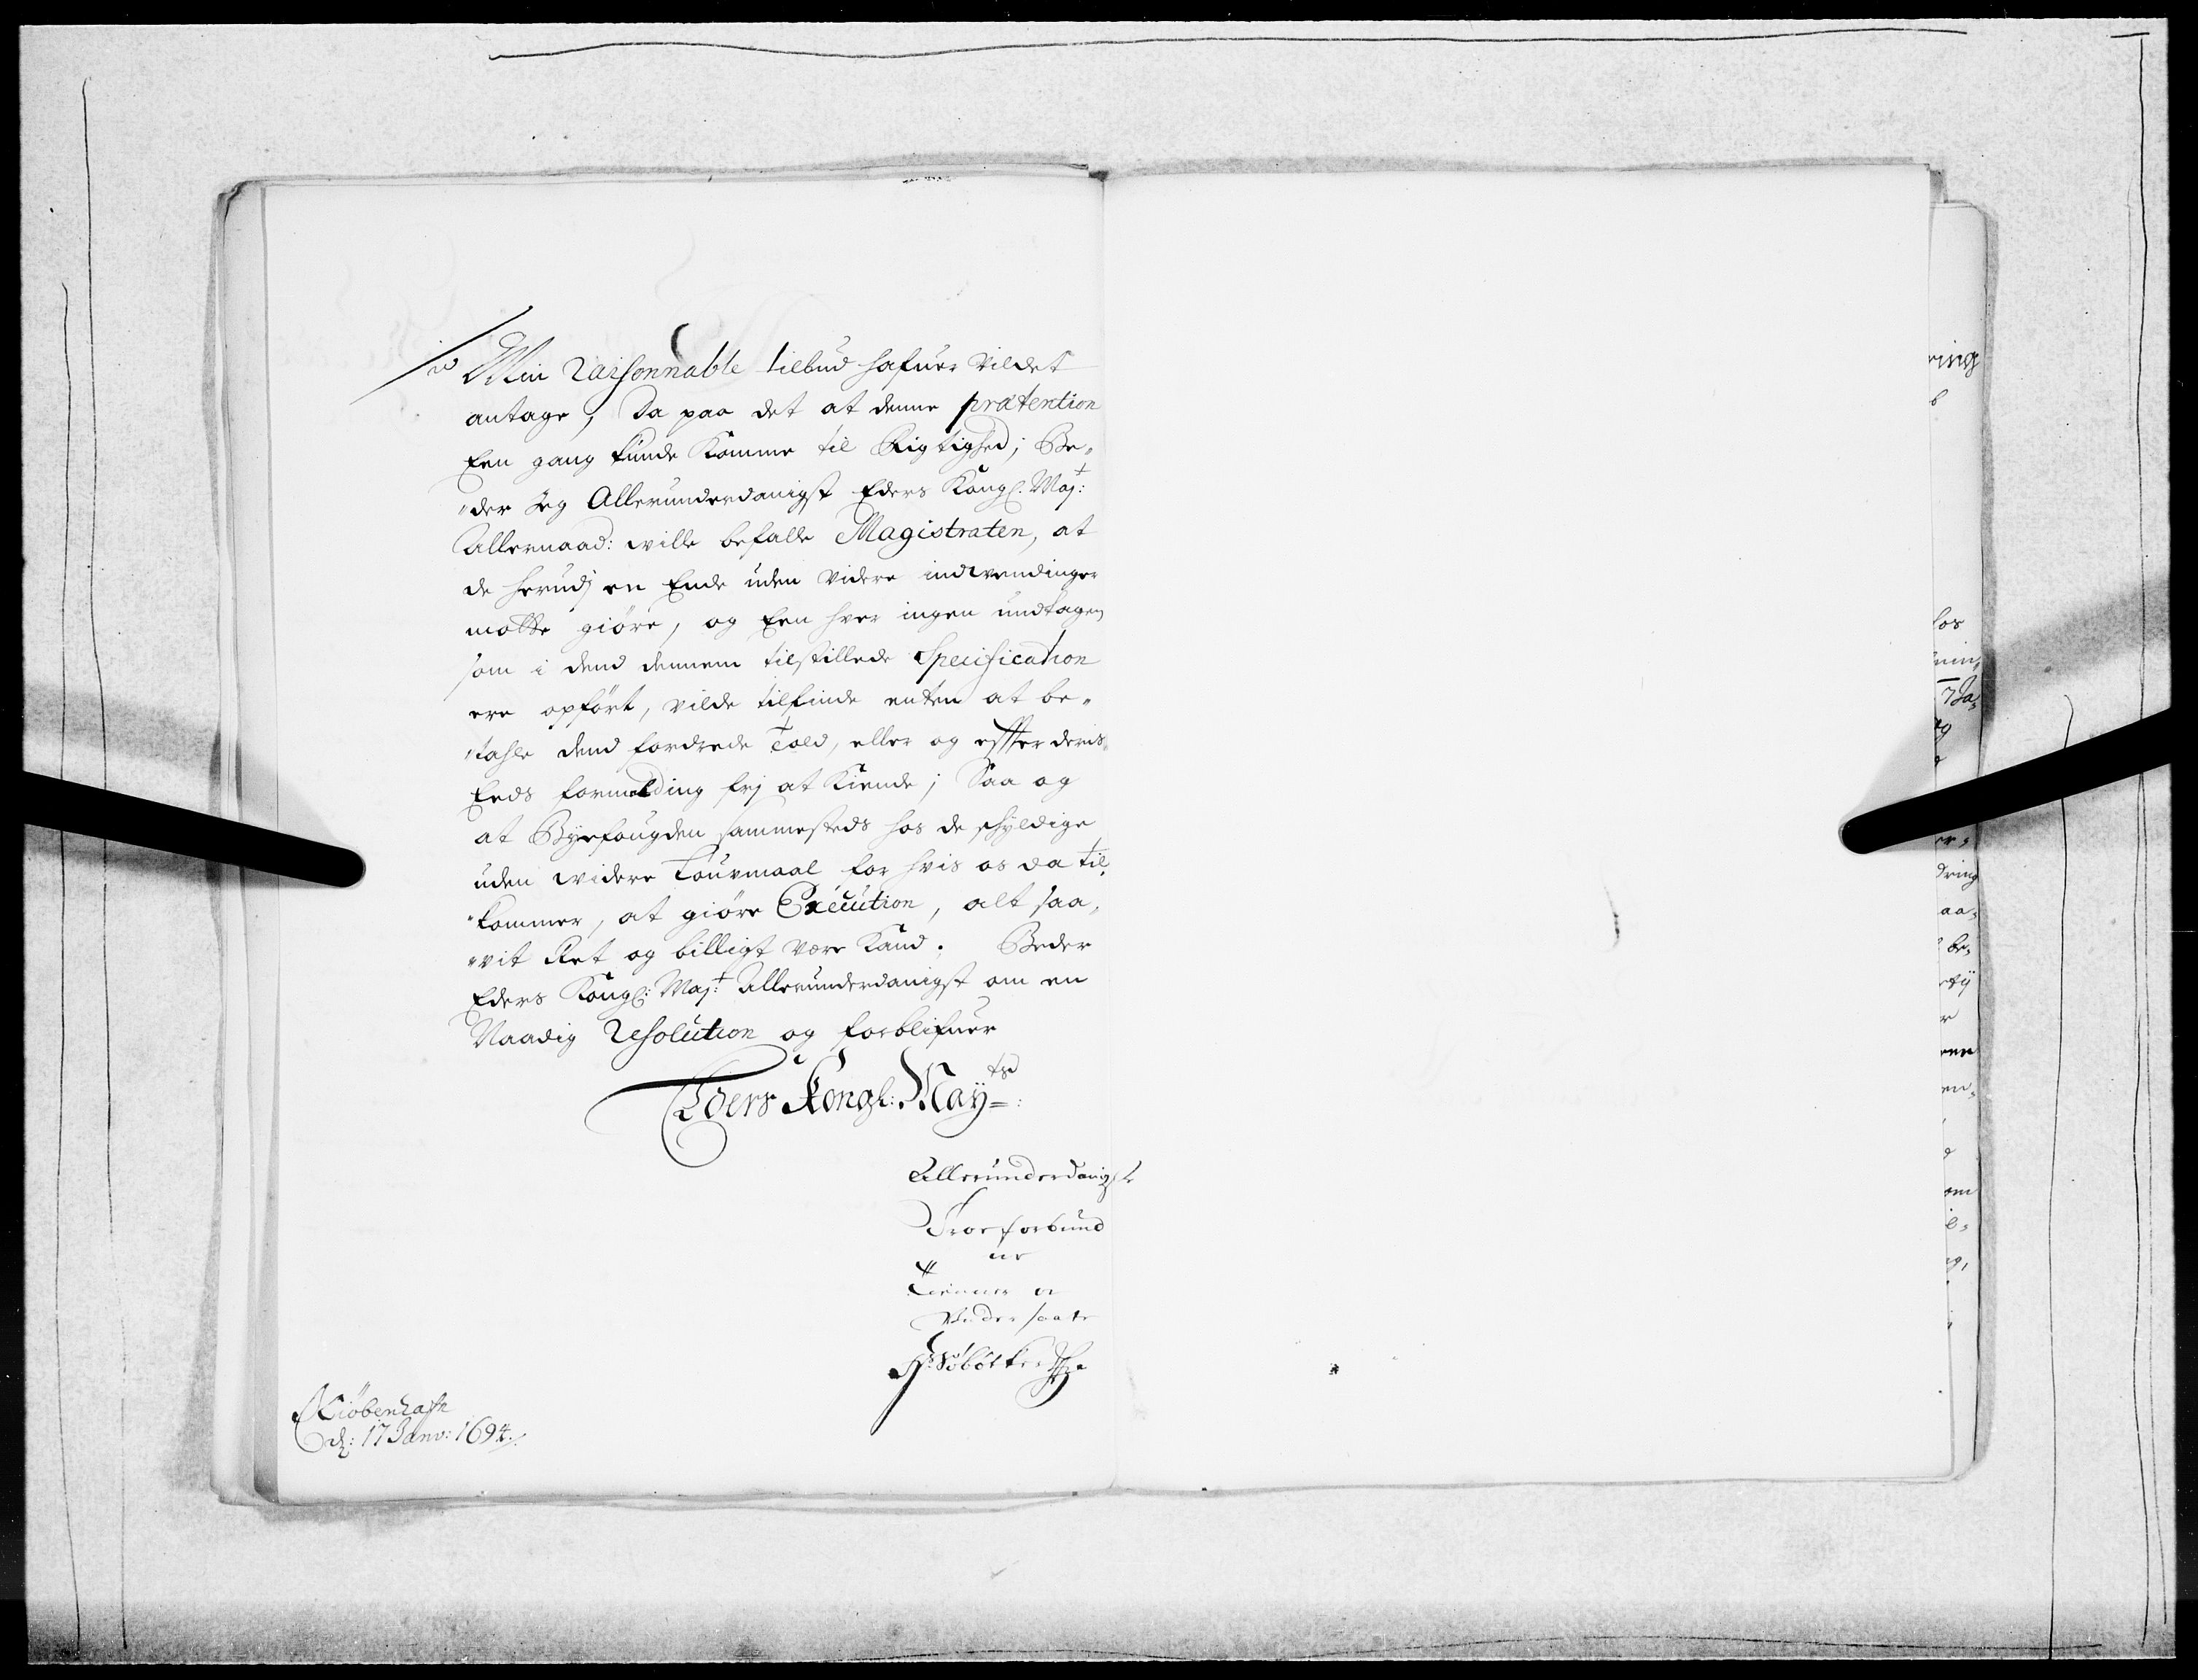 Min raisonnable tilbud hafuer vildet
antage, Da paa det at denne prætention
Een gang kunde Komme til Rigtighed; Be„
„der Jeg Allerunderdanigst Eders Kongl. Maj:t
Allernaad: wille befalle Magistraten, at
de herudj en Ende uden videre indvendinger
motte giöre, og Een hver ingen undtagen
som i dend dennem tilstillede Specification
ere opfört, vilde tilfinde enten at be„
„tahle dend fordrede Told, eller og effter deris
Eeds formelding frj at Kiende; Saa og
at Byefougden sammesteds hos de skyldige
uden widere Lougmaal for hvis os da til„
„kommer, at giöre Execution, alt saa„
„vit Ret og billigt være Kand. Beder
Eders Kongl: Maj:t Allerunderdanigst om en
Naadig Resolution og forblifuer
Eders Kongl: May:tts
Allerunderdanigste
Troe forbund
Tienner og
Undersaatte
Söbötker
Kiöbenhafn
d: 17 Janv: 1694.
ring
6
for
7 Ja„
dring
aa„
be„
en„
om